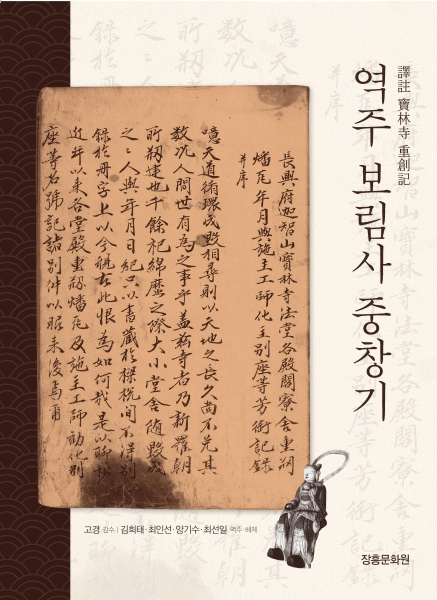 譯註 寶林寺 重創記
역주 보림사 중창기
長興府迦智山寶林寺法堂各殿閣寮舍重刱
燔瓦年月與施主工師化主別座等芳啣記錄
并序
噫天道循環成毁相尋則以天地之長久尙不免其
數况人間世有爲之事乎盖玆寺者乃新羅朝
所刱建也千餘祀綿歷之際大小堂舍隨毁
之之人與年月日紀 以書藏於樑梲間不得別
錄於冊字上以今視 此恨爲如何哉是以聊
近年以來各堂殿重刱燔瓦及施主工師勸化別
座等名號記諸別件以昭來後焉爾
고경 감수 | 김희태·최인선·양기수·최선일 역주·해제
장흥문화원